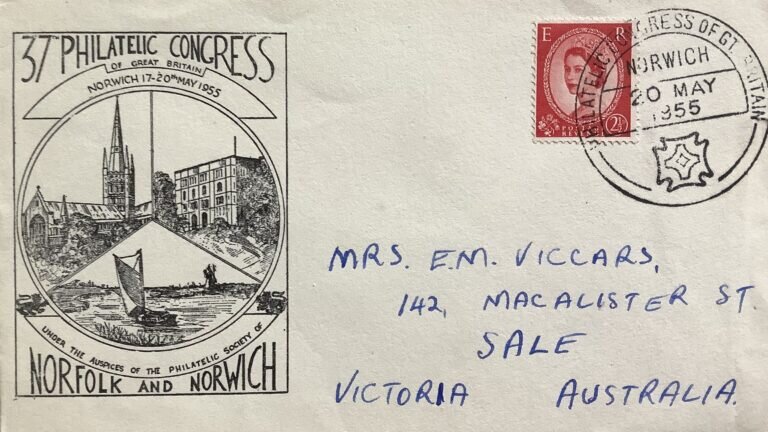 37 PHILATELIC CONGRESS
OF GREAT BRITAIN
NORWICH 17-20TH MAY 1955
UNDER THE AUSPICES OF THE PHILATELIC SOCIETY OF
NORFOLK AND NORWICH
E R
POSTAGE
REVENUE
2½D
PHILATELIC CONGRESS OF GT. BRITAIN
NORWICH
20 MAY
1955
MRS. E.M. VICCARS,
142, MACALISTER ST.
SALE
VICTORIA AUSTRALIA.